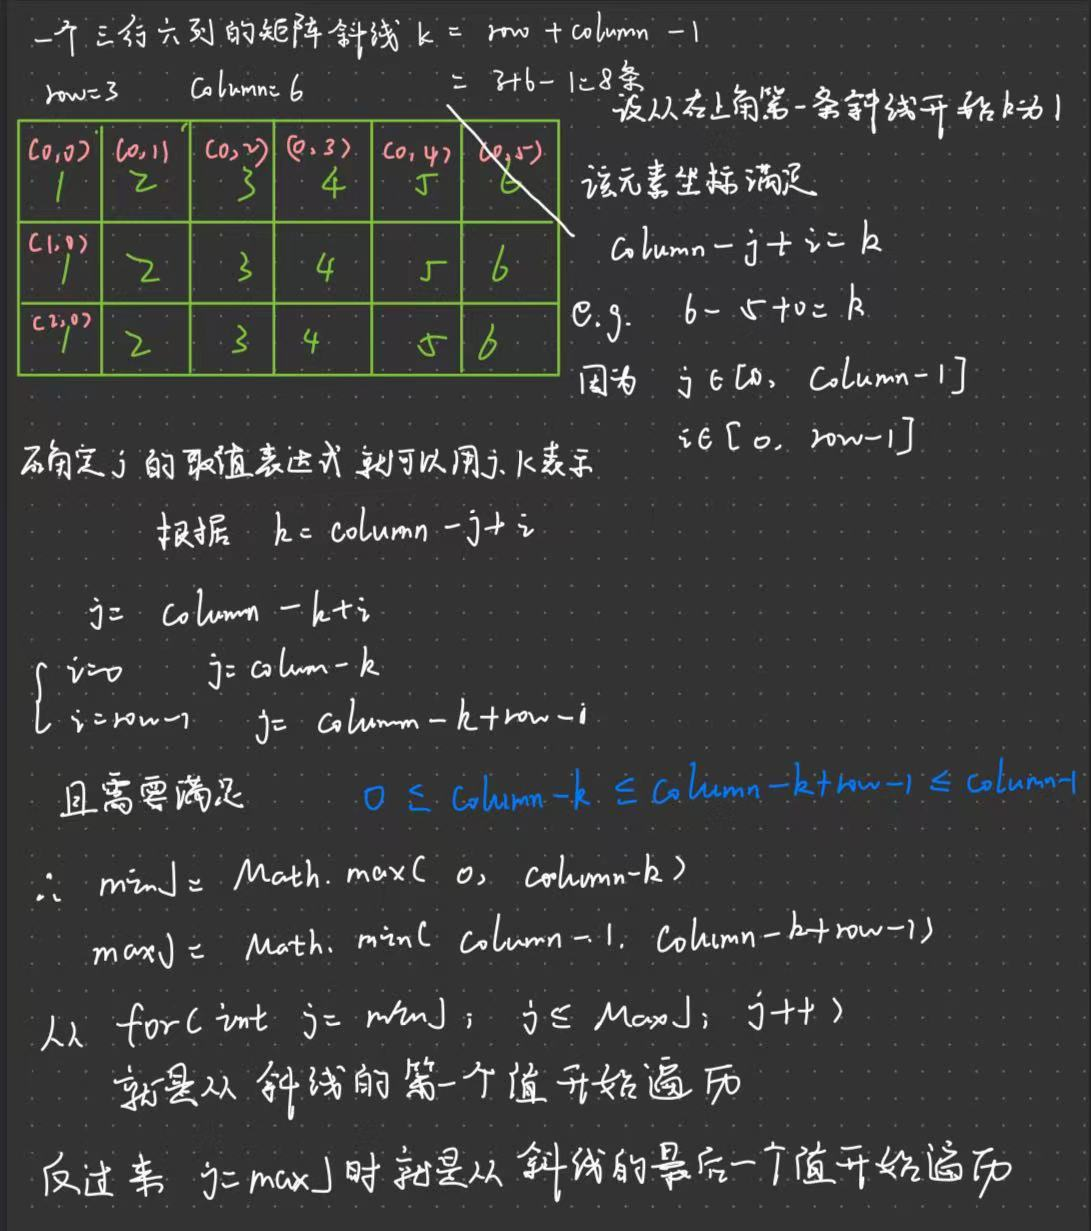 一个三行六列的矩阵斜线 k = row + column - 1
row=3 column=6 = 3+6-1=8条
设从右上角第一条斜线开始k为1
(0,0) (0,1) (0,2) (0,3) (0,4) (0,5)
1 2 3 4 5 6
该元素坐标满足
(1,0)
1 2 3 4 5 6
column-j+i=k
(2,0)
1 2 3 4 5 6
e.g. 6-5+0=k
因为 j∈[0, column-1]
i∈[0, row-1]
确定j的取值表达式就可以用j、k表示
根据 k=column-j+i
j= column-k+i
i=0 j=colum-k
i=row-1 j= column-k+row-1
且需要满足 0 ≤ column-k ≤ column-k+row-1 ≤ column-1
∴ minJ= Math.max( 0, column-k)
maxJ= Math.min( column-1, column-k+row-1)
从 for( int j= minJ; j≤ MaxJ; j++ )
就是从斜线的第一个值开始遍历
反过来 j=maxJ时就是从斜线的最后一个值开始遍历